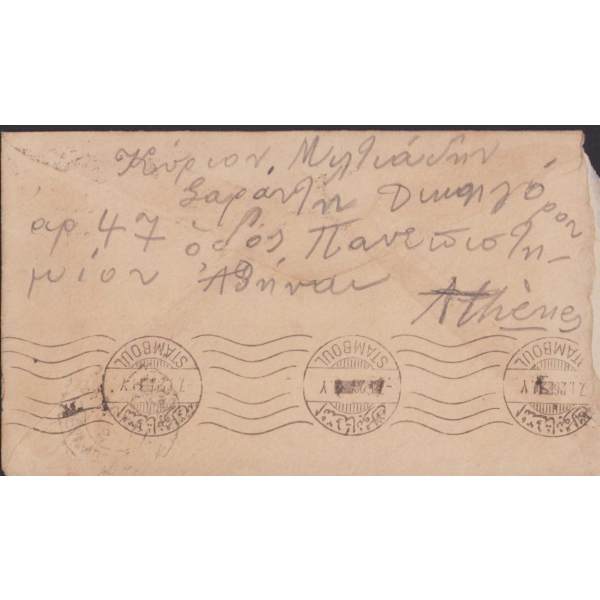 Κύριον Μιλτιάδην
Σαράντη Δικηγόρον
αρ. 47 ὁδὸς Πανεπιστη-
μίου Ἀθήναι
Athènes
STAMBOUL STAMBOUL STAMBOUL
7.1.26 7.1.26 7.1.26